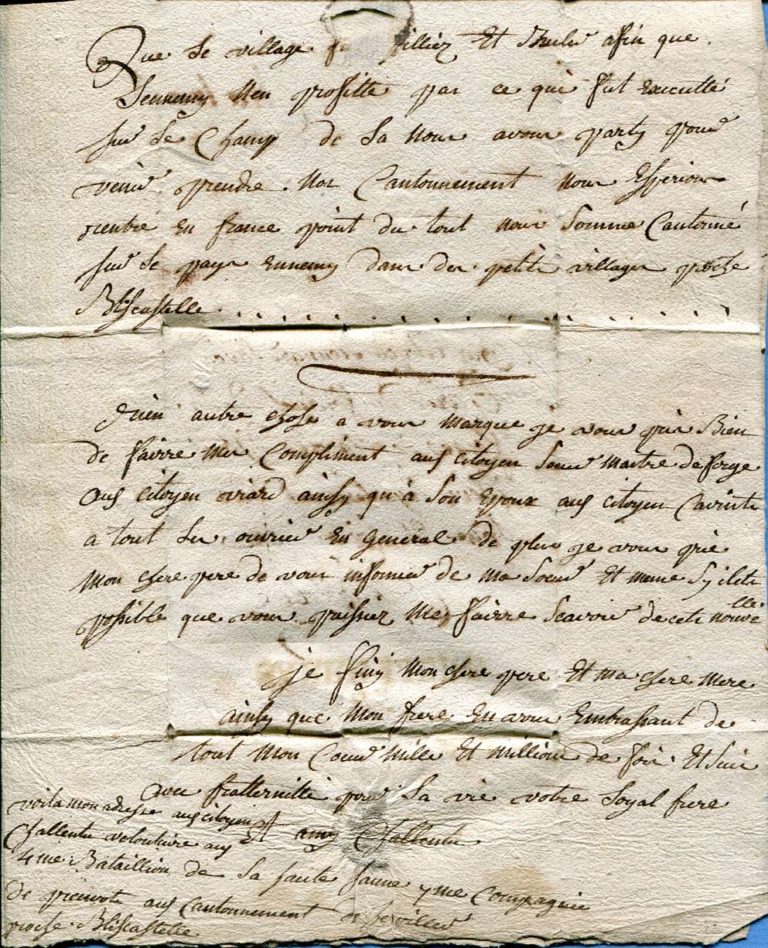 Que le village fu pilliez Et brulee afin que
lennemy nen profitte par ce qui fut Executté
sur le Champ de la nour avour party pour
venir prendre nor Cantonnement nour Esperion
rentré En france point du tout nour Somme Cantonné
sur le payr Ennemy danr der petitr villager proche
Bliscastelle . . . . . . . . . . . . . .
rien autre chose a vour marque je vour prie Bien
de fairre mer Compliment aux citoyen maitre de forge
aux citoyen oriard ainssy qu'à Son Epoux aux citoyen
a tout Ser ouvrier En General de plur je vour prie
mon chere pere de vour informer de ma Soeur Et meme Sy ileti
possible que vour puissiez me fairre Scavoir de cete nouvelle
je finy mon chere pere Et ma chere mere
ainssy que mon frere En vour Embrassant de
tout mon Coeur mille Et million de foir Et Suir
avec fratternitté pour la vie votre loyal frere
Et amy Challentu
voila mon adresse aux citoyen
Challentu volontaire aux
4me Bataillion de la haute Saune 7me Compagnie
de aux Cantonnement
proche Bliscastelle